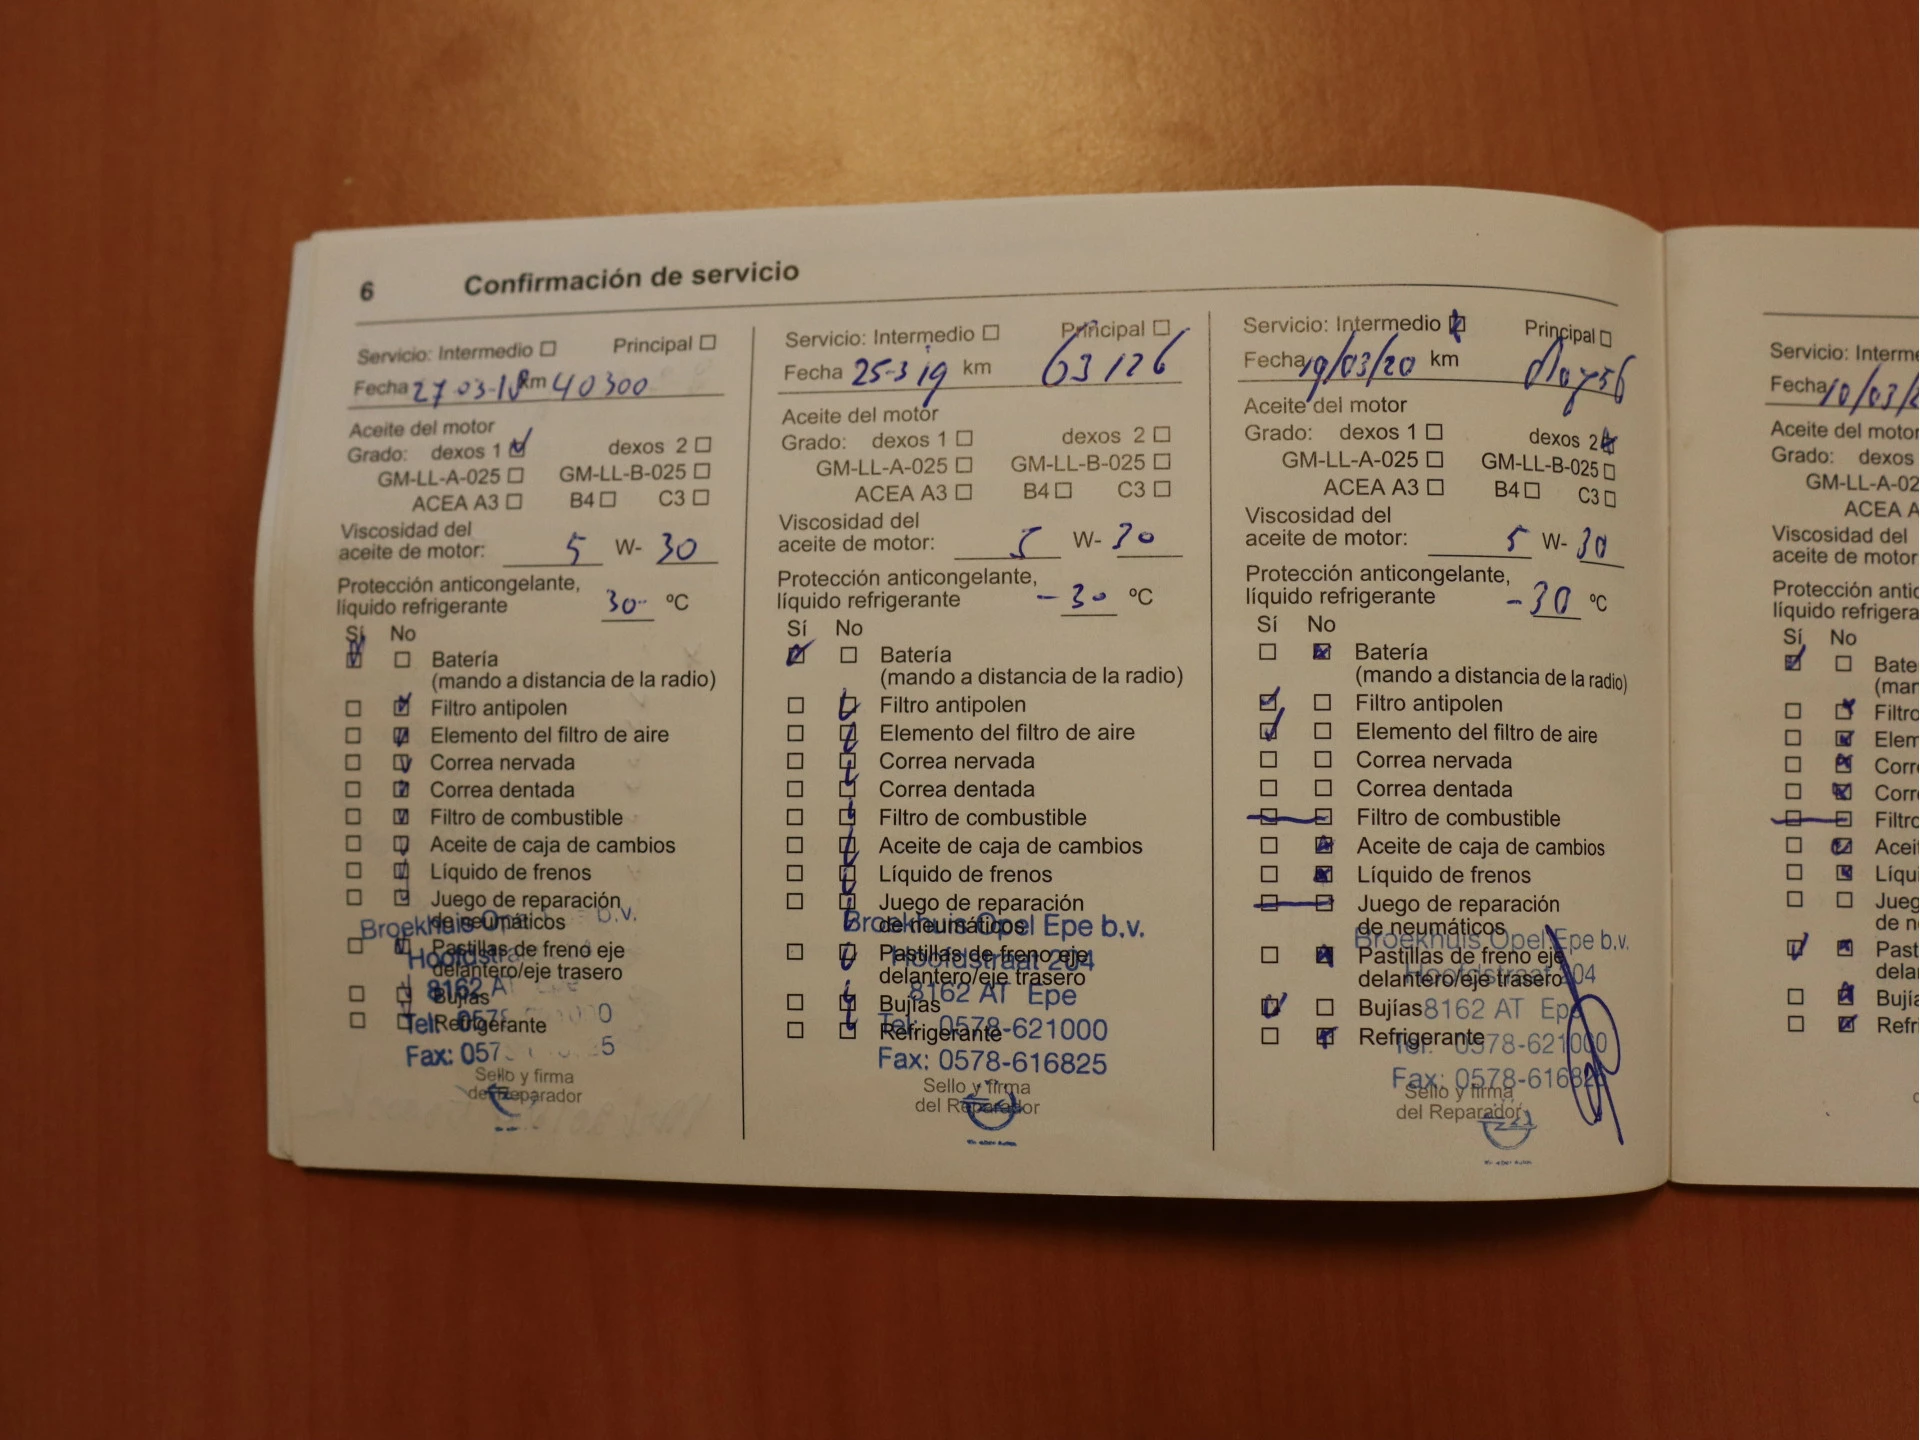 6 Confirmación de servicio
Servicio: Intermedio Principal
Fecha 27 03-18 km 40300
Aceite del motor
Grado: dexos 1 dexos 2
GM-LL-A-025 GM-LL-B-025
ACEA A3 B4 C3
Viscosidad del
aceite de motor: 5 W- 30
Protección anticongelante,
líquido refrigerante 30- ºC
Sí No
Batería
(mando a distancia de la radio)
Filtro antipolen
Elemento del filtro de aire
Correa nervada
Correa dentada
Filtro de combustible
Aceite de caja de cambios
Líquido de frenos
Juego de reparación
de neumáticos
Pastillas de freno eje
delantero/eje trasero
Bujías
Refrigerante
Broekhuis b.v.
8162 AT
Tel:
Fax:
Sello y firma
del Reparador
Servicio: Intermedio Principal
Fecha 25-3 19 km 63126
Aceite del motor
Grado: dexos 1 dexos 2
GM-LL-A-025 GM-LL-B-025
ACEA A3 B4 C3
Viscosidad del
aceite de motor: 5 W- 30
Protección anticongelante,
líquido refrigerante -30 ºC
Sí No
Batería
(mando a distancia de la radio)
Filtro antipolen
Elemento del filtro de aire
Correa nervada
Correa dentada
Filtro de combustible
Aceite de caja de cambios
Líquido de frenos
Juego de reparación
de neumáticos
Pastillas de freno eje
delantero/eje trasero
Bujías
Refrigerante
Broekhuis Opel Epe b.v.
Hoofdstraat 204
8162 AT Epe
Tel: 0578-621000
Fax: 0578-616825
Sello y firma
del Reparador
Servicio: Intermedio Principal
Fecha 19/03/20 km
Aceite del motor
Grado: dexos 1 dexos 2
GM-LL-A-025 GM-LL-B-025
ACEA A3 B4 C3
Viscosidad del
aceite de motor: 5 W- 30
Protección anticongelante,
líquido refrigerante -30 ºC
Sí No
Batería
(mando a distancia de la radio)
Filtro antipolen
Elemento del filtro de aire
Correa nervada
Correa dentada
Filtro de combustible
Aceite de caja de cambios
Líquido de frenos
Juego de reparación
de neumáticos
Pastillas de freno eje
delantero/eje trasero
Bujías
Refrigerante
Broekhuis Opel Epe b.v.
Hoofdstraat 204
8162 AT Epe
Tel: 0578-621000
Fax: 0578-616825
Sello y firma
del Reparador
Servicio: Interme
Fecha 10/03/
Aceite del motor
Grado: dexos
GM-LL-A-02
ACEA A
Viscosidad del
aceite de motor
Protección antic
líquido refrigera
Sí No
Bate
(man
Filtro
Elem
Corre
Corre
Filtro
Aceit
Líqui
Jueg
de ne
Past
dela
Bujía
Refri